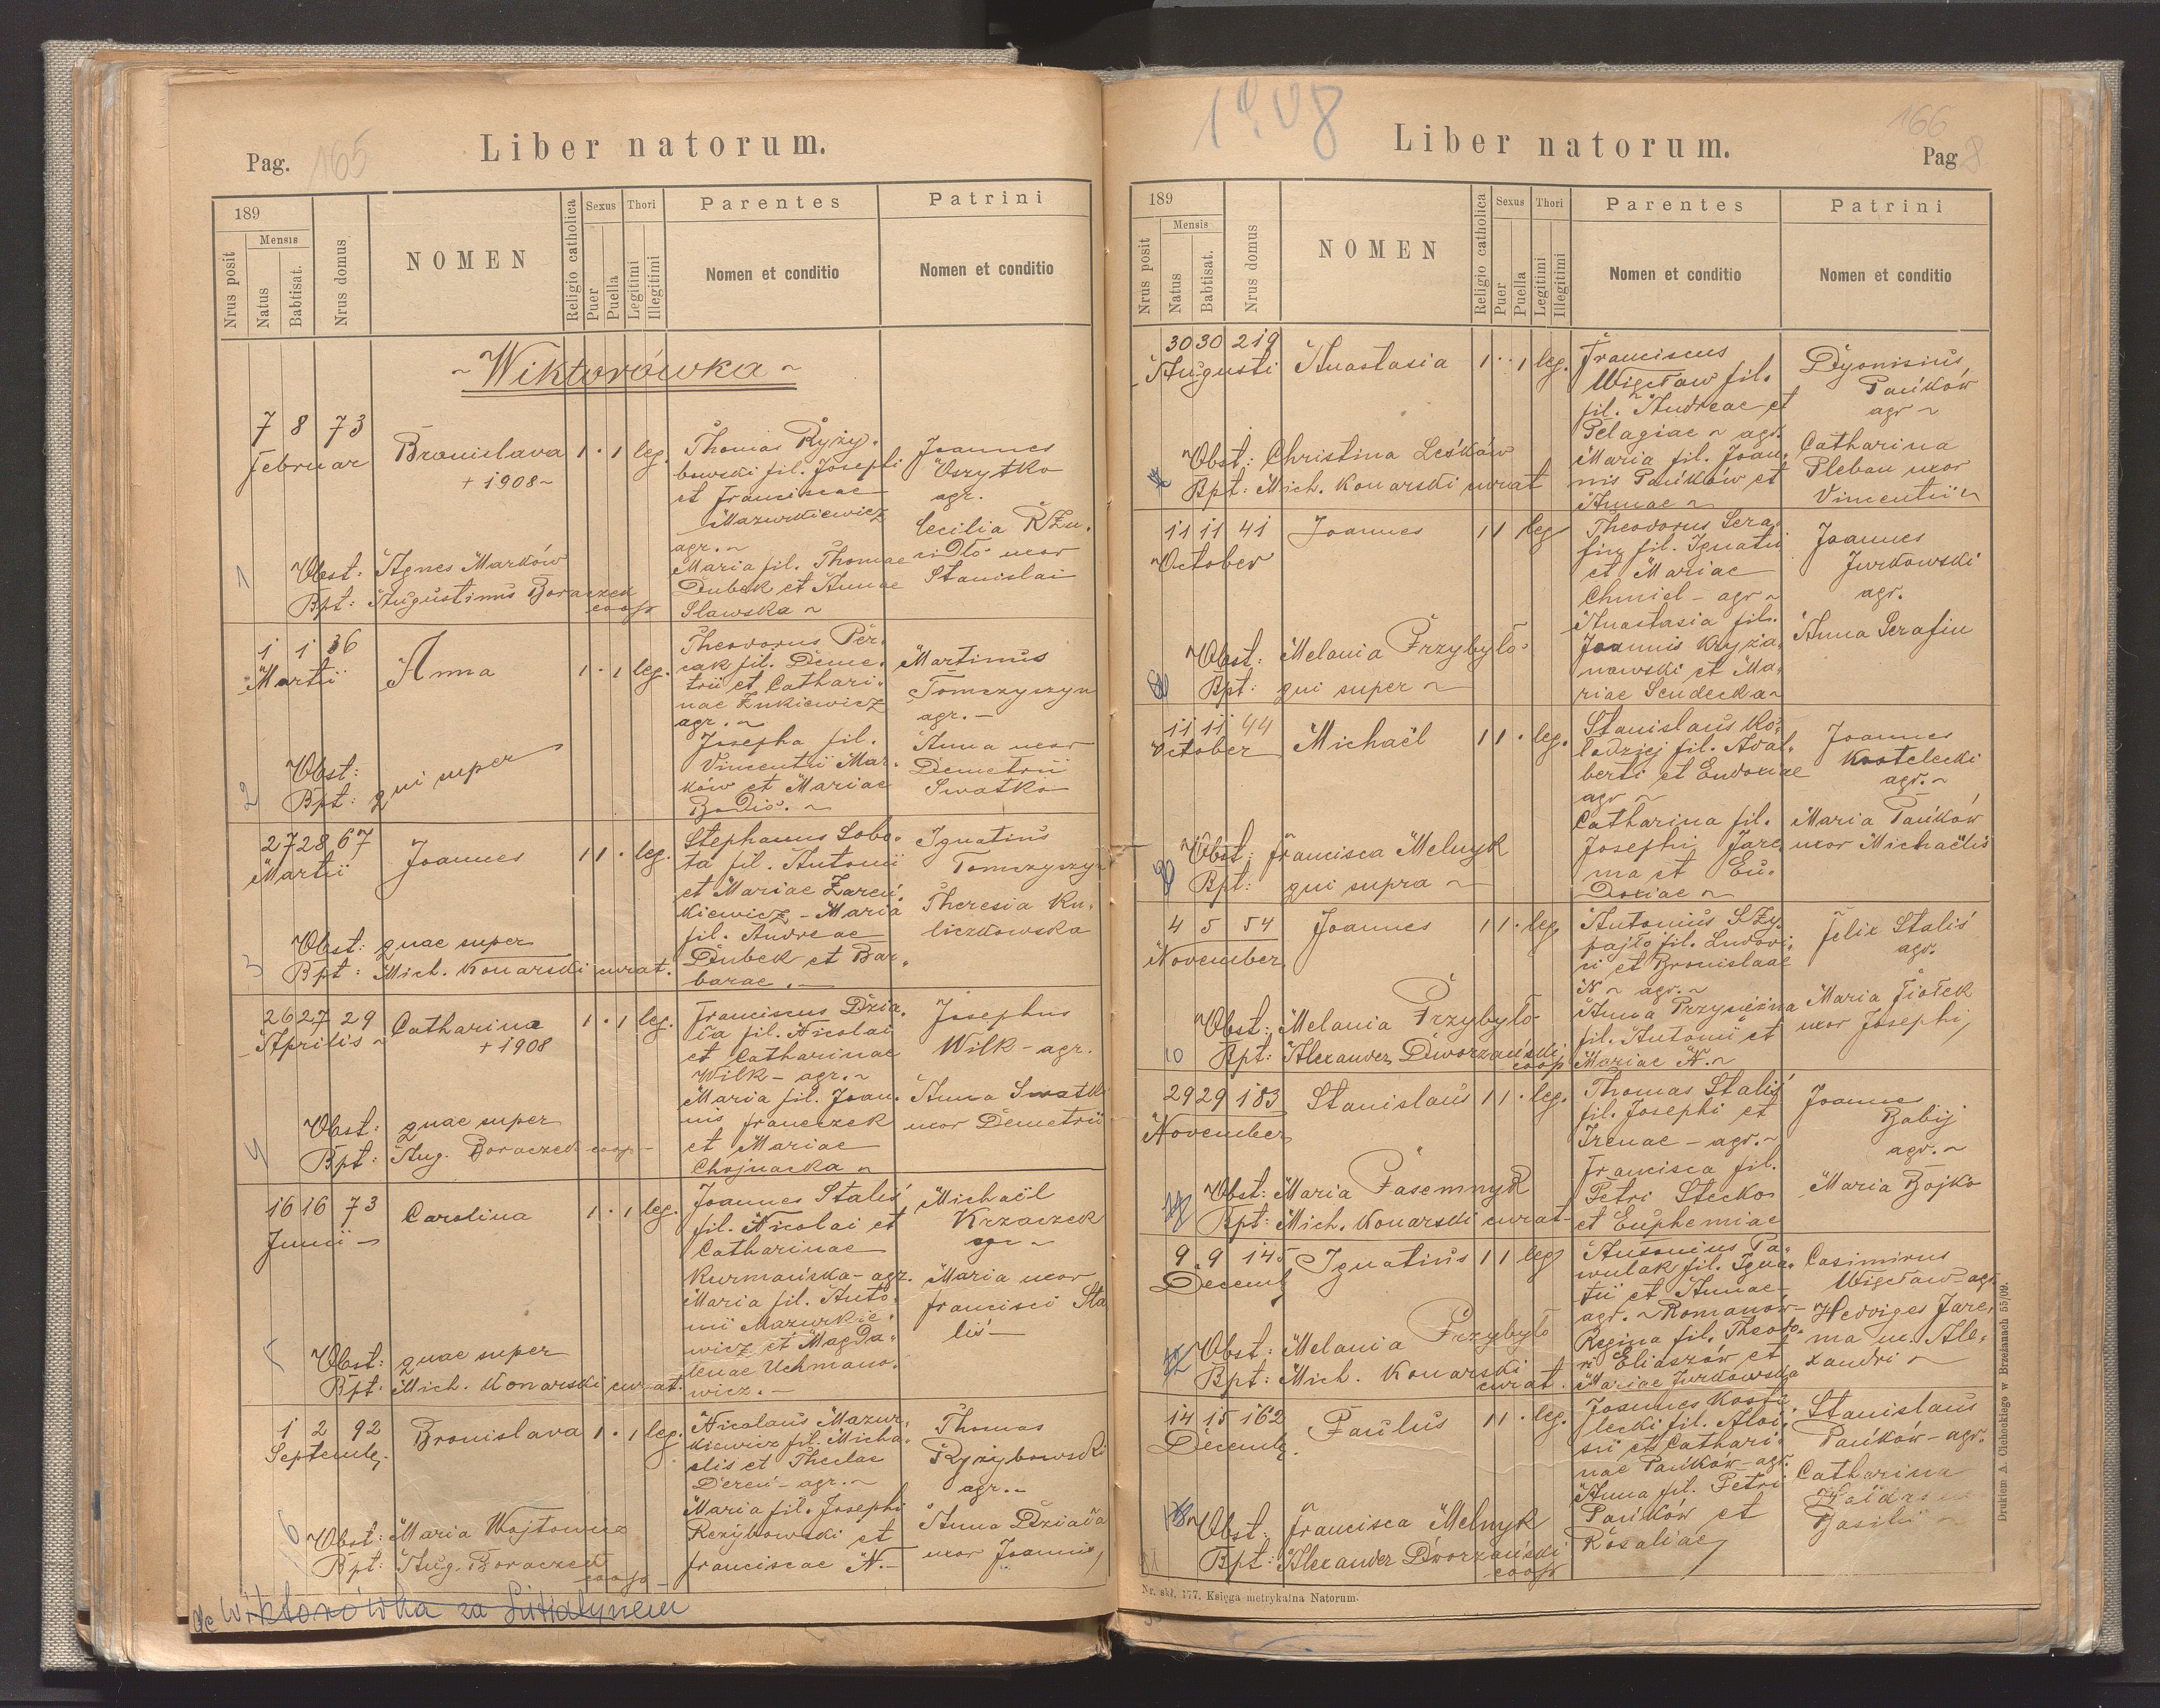 Pag. 165
Liber natorum.
189
Nrus posit
Mensis
Natus
Babtisat.
Nrus domus
NOMEN
Religio catholica
Sexus
Puer
Puella
Thori
Legitimi
Illegitimi
Parentes
Nomen et conditio
Patrini
Nomen et conditio
~ Wiktorówka ~
1
7 8 73
Februar
Bronislava
+ 1908 ~
1 . 1 leg.
Thomas Ryży-
bowski fil. Josephi
et Franciscae
Mazurkiewicz
agr. ~
Maria fil. Thomae
Dubek et Annae
Slawska ~
Joannes
Oszytko
agr.
Cecilia
uxor
Stanislai
Obst: Agnes Marków
Bpt: Augustinus Boraczek
coop
2
1 1 36
Martii
Anna
1 . 1 leg.
Theodorus Per-
cak fil. Deme-
trii et Cathari-
nae Żukiewicz
agr. ~
Josepha fil.
Vincentii Mar-
ków et Mariae
~
Martinus
Tomczyszyn
agr. —
Anna uxor
Demetrii
Swatko
Obst:
Bpt: qui super
3
27 28 67
Martii
Joannes
1 1 . leg.
Stephanus Sobo-
ta fil. Antonii
et Mariae Zareń-
kiewicz - Maria
fil. Andreae
Dubek et Bar-
barae. —
Ignatius
Tomczyszyn
Theresia Ku-
liczkowska
Obst: quae super
Bpt: Mich. Konarski curat.
4
26 27 29
Aprilis ~
Catharina
+ 1908
1 . 1 leg.
Franciscus Dzia-
ła fil. Nicolai
et Catharinae
Wilk — agr. ~
Maria fil. Joan-
nis Franczek
et Mariae
Chojnacka ~
Josephus
Wilk - agr.
Anna Swatko
uxor Demetrii
Obst: quae super
Bpt: Aug. Boraczek coop —
5
16 16 73
Junii —
Carolina
1 . 1 leg.
Joannes Staliś
fil. Nicolai et
Catharinae
Kurmańska - agr.
Maria fil. Anto-
nii Mazurkie-
wicz et Magda-
lenae Uchmano-
wicz. —
Michaël
Krzaczek
agr ~
Maria uxor
Francisci Sta
liś —
Obst: quae super
Bpt: Mich. Konarski curat.
6
1 2 92
Septemb.
Bronislava
1 . 1 leg.
Nicolaus Mazur-
kiewicz fil. Micha-
elis et Theclae
Dereń - agr. ~
Maria fil. Josephi
Rezybowski et
Franciscae N. —
Thomas
Ryżybowski
agr. ~
Anna Działa
uxor Joannis
Obst: Maria Wojtowicz
Bpt: Aug. Boraczek
coop —
Wiktorówka za Litiatynem
1908
Liber natorum.
166
Pag 8
189
Nrus posit
Mensis
Natus
Babtisat.
Nrus domus
NOMEN
Religio catholica
Sexus
Puer
Puella
Thori
Legitimi
Illegitimi
Parentes
Nomen et conditio
Patrini
Nomen et conditio
30 30 219
Augusti
Anastasia
1 . . 1 leg.
Franciscus
Więcław fil.
fil. Andreae et
Pelagiae ~ agr.
Maria fil. Joan-
nis Pańków et
Annae ~
Dyonisius
Pańków
agr ~
Catharina
Pleban uxor
Vincentii ~
Obst: Christina Leśków
Bpt: Mich. Konarski curat
11 11 41
October
Joannes
1 1 leg
Theodorus Sera-
fin fil. Ignatii
et Mariae
Chmiel - agr ~
Anastasia fil.
Joannis Kryża-
nowski et Ma-
riae Sendecka ~
Joannes
Jurkowski
agr.
Anna Serafin
Obst: Melania Przybyło
Bpt: qui super ~
11 11 44
October
Michaël
1 1 . leg.
Stanislaus Ko-
łodziej fil. Adal-
berti et Eudoxiae
agr ~
Catharina fil.
Josephi Jare-
ma et Eu-
doxiae ~
Joannes
Kostelecki
agr. ~
Maria Pańków
uxor Michaëlis
Obst: Francisca Melnyk
Bpt: qui supra ~
10
4 5 54
November
Joannes
1 1 . leg.
Antonius Szy-
pajło fil. Ludovi-
ci et Bronislaae
N ~ agr. ~
Anna Przysiężna
fil. Antonii et
Mariae N. ~
Felix Staliś
agr.
Maria Fiołek
uxor Josephi
Obst: Melania Przybyło
Bpt: Alexander Dworzański
coop
29 29 183
November
Stanislaus
1 1 . leg.
Thomas Staliś
fil. Josephi et
Irenae - agr. ~
Francisca fil.
Petri Stecko
et Euphemiae
Joannes
Babij
agr. ~
Maria Bojko
Obst: Maria Pasemnyk
Bpt: Mich. Konarski curat —
9 9 145
Decemb
Ignatius
1 1 leg
Antonius Pa-
wulak fil. Igna-
tii et Annae
agr. ~ Romanów —
Regina fil. Theodo-
ri Eliaszów et
Mariae Jurkowska
Casimirus
Więcław - agr.
Hedviges Jare-
ma ux. Ale-
xandri ~
Obst: Melania Przybyło
Bpt: Mich. Konarski
curat.
14 15 162
Decemb.
Paulus
1 1 . leg.
Joannes Koste-
lecki fil. Aloi-
sii et Cathari-
nae Pańków - agr.
Anna fil. Petri
Pańków et
Rosaliae
Stanislaus
Pańków - agr.
Catharina
Basilii ~
Obst: Francisca Melnyk
Bpt: Alexander Dworzański
coop
Nr. skł. 177. Księga metrykalna Natorum.
Drukiem A. Cichockiego w Brzeżanach 55/09.